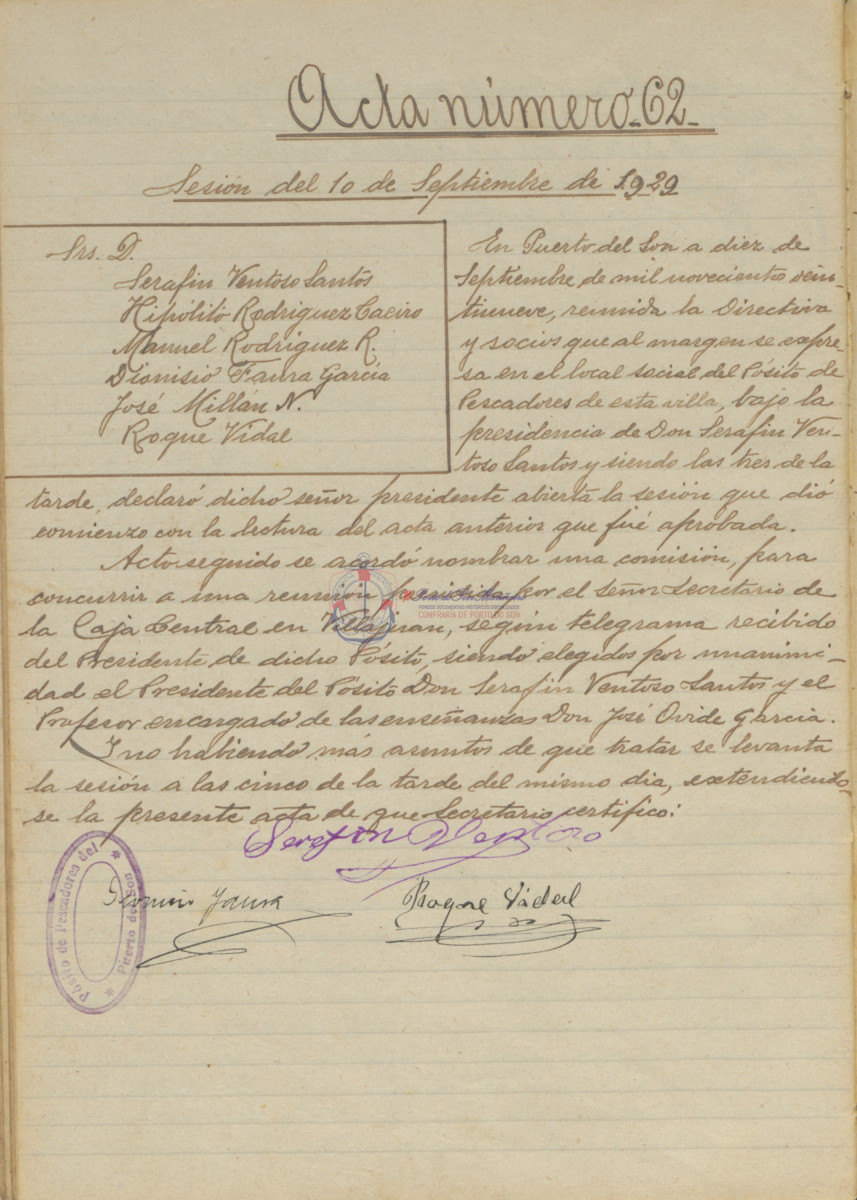 Acta número-62-
Sesión del 10 de Septiembre de 1929
Srs. D.
Serafin Ventoso Santos
Hipólito Rodriguez Caeiro
Manuel Rodriguez R.
Dionisio Faura Garcia
José Millán N.
Roque Vidal
En Puerto del Son a diez de
Septiembre de mil novecientos vein-
tinueve, reunida la Directiva
y socios que al margen se expre-
sa en el local social del Pósito de
Pescadores de esta villa, bajo la
presidencia de Don Serafin Ven-
toso Santos y siendo las tres de la
tarde, declaró dicho señor presidente abierta la sesión que dió
comienzo con la lectura del acta anterior que fué aprobada.
Acto seguido se acordó nombrar una comisión, para
concurrir a una reunión presidida por el señor Secretario de
la Caja Central en Villajuan, según telegrama recibido
del Presidente de dicho Pósito, siendo elegidos por unanimi-
dad el Presidente del Pósito Don Serafin Ventoso Santos y el
Profesor encargado de las enseñanzas Don José Ovide Garcia.
Y no habiendo más asuntos de que tratar se levanta
la sesión a las cinco de la tarde del mismo dia, extendiendo-
se la presente acta de que Secretario certifico:
Serafin Ventoso
Dionisio Faura
Roque Vidal
Pósito de Pescadores del
Puerto del Son
CONFRARÍA DE PORTO DO SON